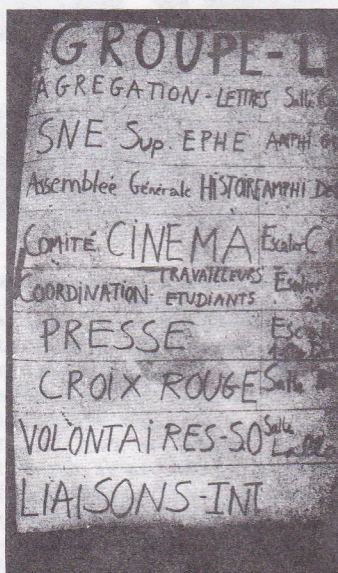 GROUPE-L
AGREGATION-LETTRES Salle
SNE Sup. EPHE AMPHI
Assembleé Générale HISTOIRE AMPHI DE
COMITÉ CINEMA Escalier C
COORDINATION- TRAVAILLEURS
ETUDIANTS
PRESSE
CROIX ROUGE Salle
VOLONTAIRES-S.O Salle
LIAISONS-INT